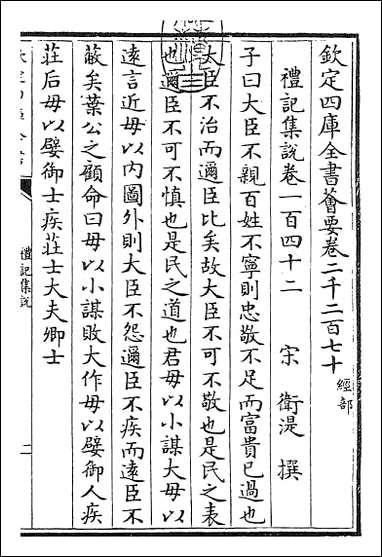 欽定四庫全書薈要卷二千二百七十 經部
禮記集說卷一百四十二 宋 衛湜 撰
子曰大臣不親百姓不寧則忠敬不足而富貴已過也
大臣不治而邇臣比矣故大臣不可不敬也是民之表
也邇臣不可不慎也是民之道也君毋以小謀大毋以
遠言近毋以內圖外則大臣不怨邇臣不疾而遠臣不
蔽矣葉公之顧命曰毋以小謀敗大作毋以嬖御人疾
莊后毋以嬖御士疾莊士大夫卿士
禮記集說